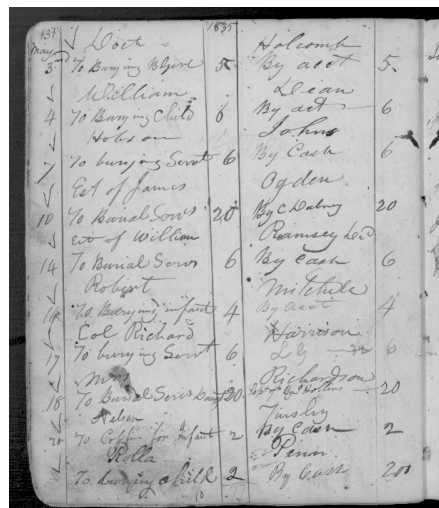 131 1835
Doct Holcomb
May 3 To Burying B Girl 5 By acct 5
William Dean
4 To Burying Child 6 By act 6
Hobson Johns
7 To burying Servt 6 By Cash 6
Est of James Ogden
10 To Burial Servs 20 By C Dabney 20
est of William Ramsey Decd
14 To Burial Servs 6 By Cash 6
Robert Mitchell
To Burying infant 4 By acct 4
Col Richard Harrison
17 To burying Servt 6 6
Mrs Richardson
18 To Burial Servs 20 20
Nelson Tinsley
20 To Coffin for Infant 2 By Cash 2
Rolla
To burying child 2 By Cash